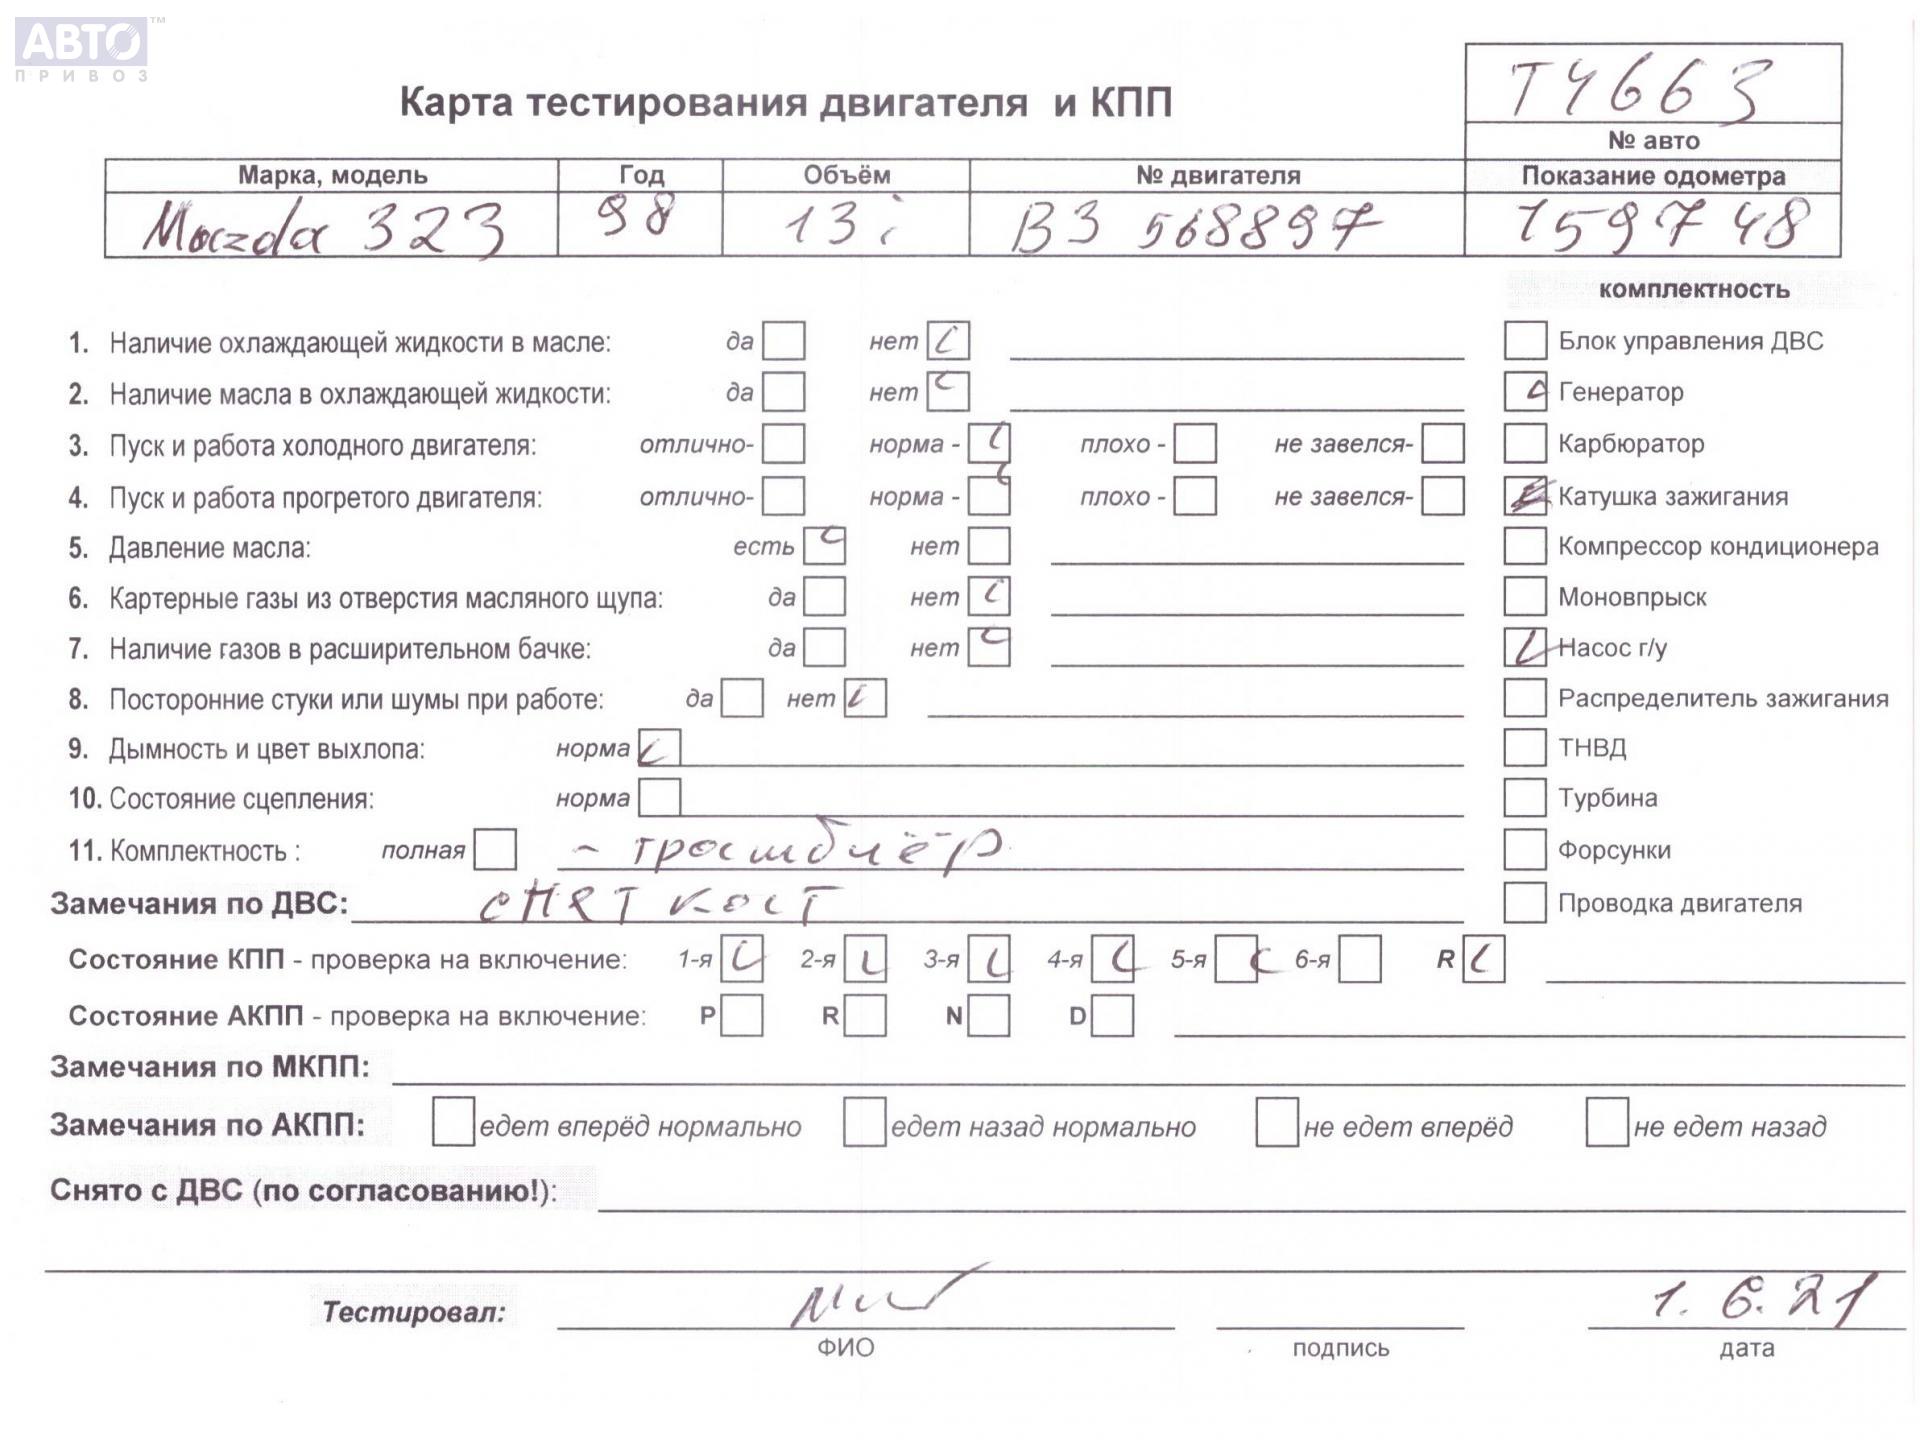 АВТО™
ПРИВОЗ
Т4663
Карта тестирования двигателя и КПП
№ авто
Марка, модель Год Объём № двигателя Показание одометра
Mazda 323 98 13i B3 568897 159748
комплектность
1. Наличие охлаждающей жидкости в масле: да нет Блок управления ДВС
2. Наличие масла в охлаждающей жидкости: да нет Генератор
3. Пуск и работа холодного двигателя: отлично- норма - плохо - не завелся- Карбюратор
4. Пуск и работа прогретого двигателя: отлично- норма - плохо - не завелся- Катушка зажигания
5. Давление масла: есть нет Компрессор кондиционера
6. Картерные газы из отверстия масляного щупа: да нет Моновпрыск
7. Наличие газов в расширительном бачке: да нет Насос г/у
8. Посторонние стуки или шумы при работе: да нет Распределитель зажигания
9. Дымность и цвет выхлопа: норма ТНВД
10. Состояние сцепления: норма Турбина
11. Комплектность : полная - Форсунки
Замечания по ДВС: снят Проводка двигателя
Состояние КПП - проверка на включение: 1-я 2-я 3-я 4-я 5-я 6-я R
Состояние АКПП - проверка на включение: P R N D
Замечания по МКПП:
Замечания по АКПП: едет вперёд нормально едет назад нормально не едет вперёд не едет назад
Снято с ДВС (по согласованию!):
Тестировал: 1.6.21
ФИО подпись дата